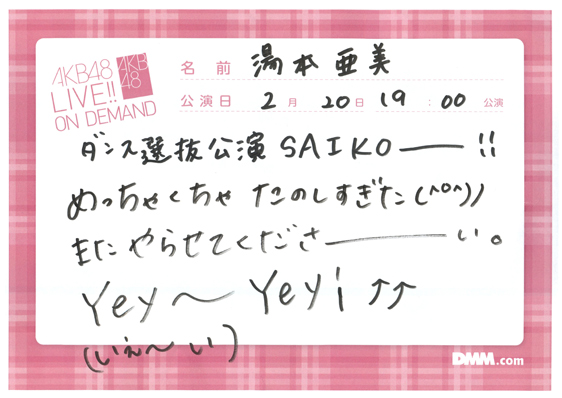 AKB48
LIVE!!
ON DEMAND
AKB
48
名前 湯本亜美
公演日 2月20日 19:00 公演
ダンス選抜公演SAIKO――!!
めっちゃくちゃ たのしすぎた(^o^)ノ
またやらせてくださ―――い。
Yey〜Yeyi↑↑
(いぇ〜い)
DMM.com